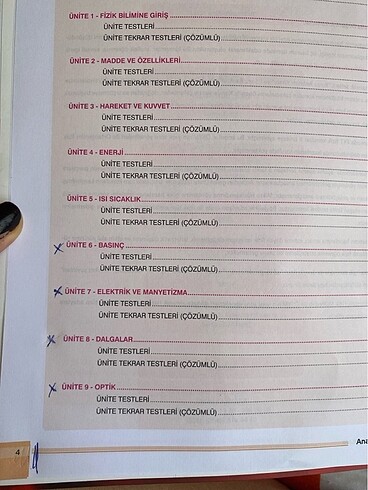 ÜNİTE 1 - FİZİK BİLİMİNE GİRİŞ
ÜNİTE TESTLERİ
ÜNİTE TEKRAR TESTLERİ (ÇÖZÜMLÜ)
ÜNİTE 2 - MADDE VE ÖZELLİKLERİ
ÜNİTE TESTLERİ
ÜNİTE TEKRAR TESTLERİ (ÇÖZÜMLÜ)
ÜNİTE 3 - HAREKET VE KUVVET
ÜNİTE TESTLERİ
ÜNİTE TEKRAR TESTLERİ (ÇÖZÜMLÜ)
ÜNİTE 4 - ENERJİ
ÜNİTE TESTLERİ
ÜNİTE TEKRAR TESTLERİ (ÇÖZÜMLÜ)
ÜNİTE 5 - ISI SICAKLIK
ÜNİTE TESTLERİ
ÜNİTE TEKRAR TESTLERİ (ÇÖZÜMLÜ)
ÜNİTE 6 - BASINÇ
ÜNİTE TESTLERİ
ÜNİTE TEKRAR TESTLERİ (ÇÖZÜMLÜ)
ÜNİTE 7 - ELEKTRİK VE MANYETİZMA
ÜNİTE TESTLERİ
ÜNİTE TEKRAR TESTLERİ (ÇÖZÜMLÜ)
ÜNİTE 8 - DALGALAR
ÜNİTE TESTLERİ
ÜNİTE TEKRAR TESTLERİ (ÇÖZÜMLÜ)
ÜNİTE 9 - OPTİK
ÜNİTE TESTLERİ
ÜNİTE TEKRAR TESTLERİ (ÇÖZÜMLÜ)
Ana
4